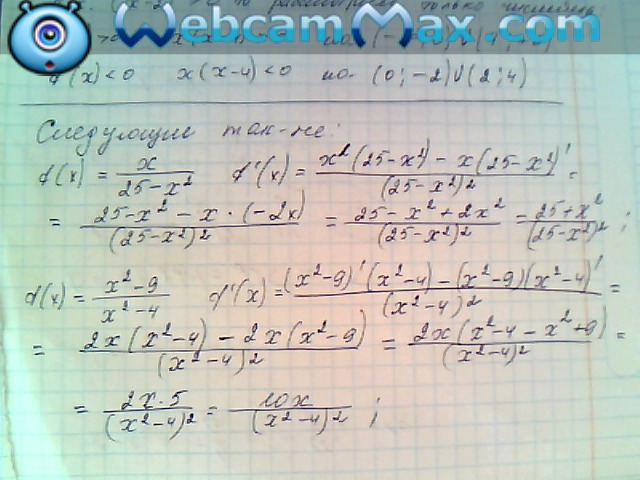 WebcamMax.com
f'(x) < 0 x(x-4) < 0 на (0; -2) ∪ (2; 4)
Следующие так-же:
f(x) = x/(25-x²) f'(x) = (x'(25-x²) - x(25-x²)')/(25-x²)² =
= (25-x² - x·(-2x))/(25-x²)² = (25-x²+2x²)/(25-x²)² = (25+x²)/(25-x²)²;
f(x) = (x²-9)/(x²-4) f'(x) = ((x²-9)'(x²-4) - (x²-9)(x²-4)')/(x²-4)² =
= (2x(x²-4) - 2x(x²-9))/(x²-4)² = (2x(x²-4-x²+9))/(x²-4)² =
= (2x·5)/(x²-4)² = 10x/(x²-4)²;